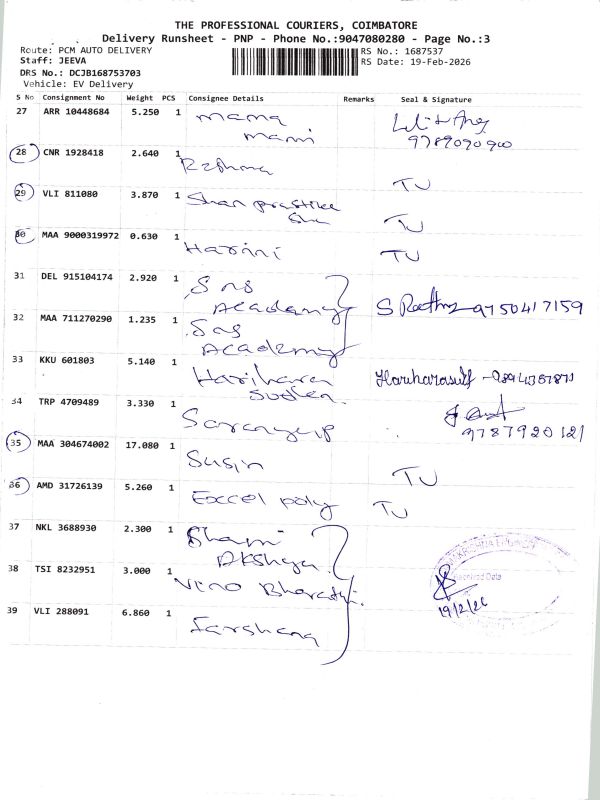 THE PROFESSIONAL COURIERS, COIMBATORE
Delivery Runsheet - PNP - Phone No.:9047080280 - Page No.:3
Route: PCM AUTO DELIVERY
RS No.: 1687537
Staff: JEEVA
RS Date: 19-Feb-2026
DRS No.: DCJB168753703
Vehicle: EV Delivery
S No Consignment No Weight PCS Consignee Details Remarks Seal & Signature
27 ARR 10448684 5.250 1 mama
mami
9789090900
28 CNR 1928418 2.640 1 Reshma TU
29 VLI 811080 3.870 1 Shan TU
30 MAA 9000319972 0.630 1 Harini TU
31 DEL 915104174 2.920 1 Sns
Academy
S 9750417159
32 MAA 711270290 1.235 1 Sns
Academy
33 KKU 601803 5.140 1 Harihara
Sudhan
34 TRP 4709489 3.330 1
9787920121
35 MAA 304674002 17.080 1 Susin TU
36 AMD 31726139 5.260 1 Excel poly TU
37 NKL 3688930 2.300 1 Shami
Akshya
38 TSI 8232951 3.000 1 Vino Bharathi
19/2/26
39 VLI 288091 6.860 1 Farshana